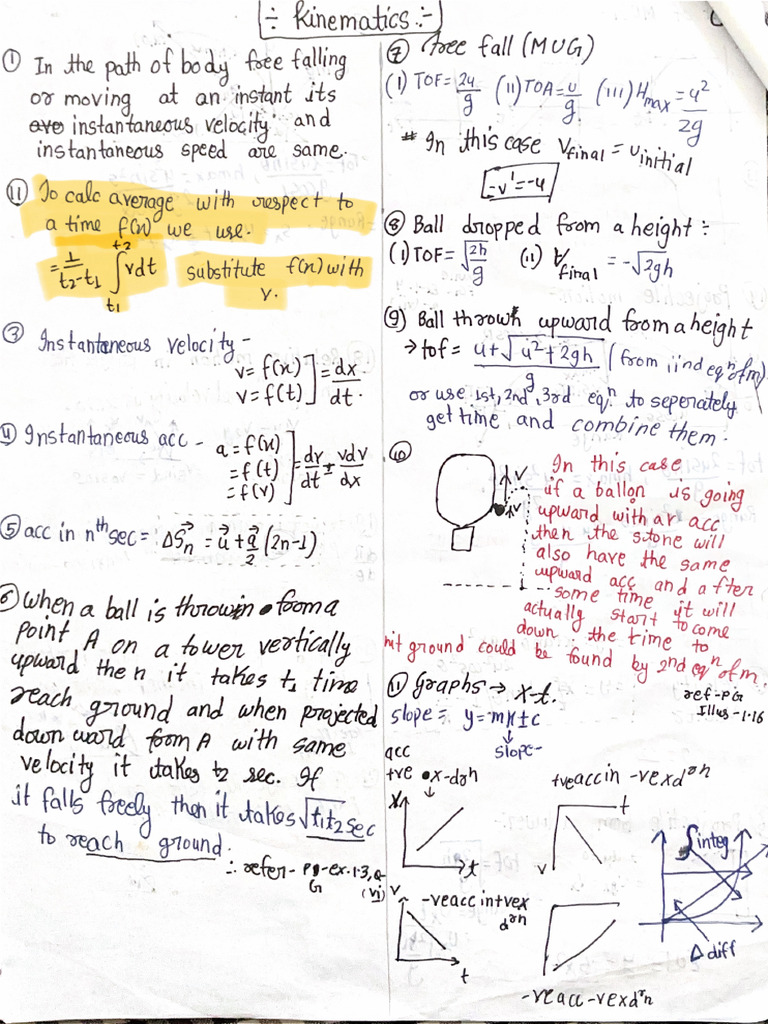 ÷ Kinematics :-
① In the path of body free falling
or moving at an instant its
instantaneous velocity and
instantaneous speed are same.
⑪ To calc average with respect to
a time f(x) we use.
= 1/t2-t1 ∫t1 t2 vdt substitute f(x) with
v.
③ Instantaneous velocity -
v= f(x)
v= f(t) ] = dx/dt.
4) Instantaneous acc - a = f(x)
= f(t)
= f(v) ] = dv/dt ± vdv/dx
⑤ acc in nth sec = ΔSn = u + a/2 (2n-1)
6 When a ball is throwin from a
point A on a tower vertically
upward then it takes t1 time
reach ground and when projected
downward from A with same
velocity it takes t2 sec. If
it falls freely then it takes √t1t2 sec
to reach ground.
∴ refer- PG-ex.1.3, Q-
(vi)
⑦ free fall (MUG)
(1) TOF= 2u/g (11) TOA= u/g. (111) Hmax = u²/2g
# In this case Vfinal = uinitial
-v' = -u
⑧ Ball dropped from a height :
(1) TOF= √2h/g (11) Vfinal = -√2gh
⑨ Ball thrown upward from a height
→ tof = u+√u²+2gh/g (from iind eqn of m)
or use 1st, 2nd, 3rd eqn to seperately
get time and combine them.
⑩ In this case
if a ballon is going
upward with ar acc
then the stone will
also have the same
upward acc and after
some time it will
actually start to come
down the time to
hit ground could be found by 2nd eqn of m.
v
v
11 graphs → x-t.
ref-PG
Illus-1.16
slope = y = mx±c
↓
slope-
acc
+ve x-drn
+ve acc in -ve x drn
x
t
t
v
-ve acc in +ve x
drn
v
t
-ve acc -ve x drn
∫integ
Δ diff